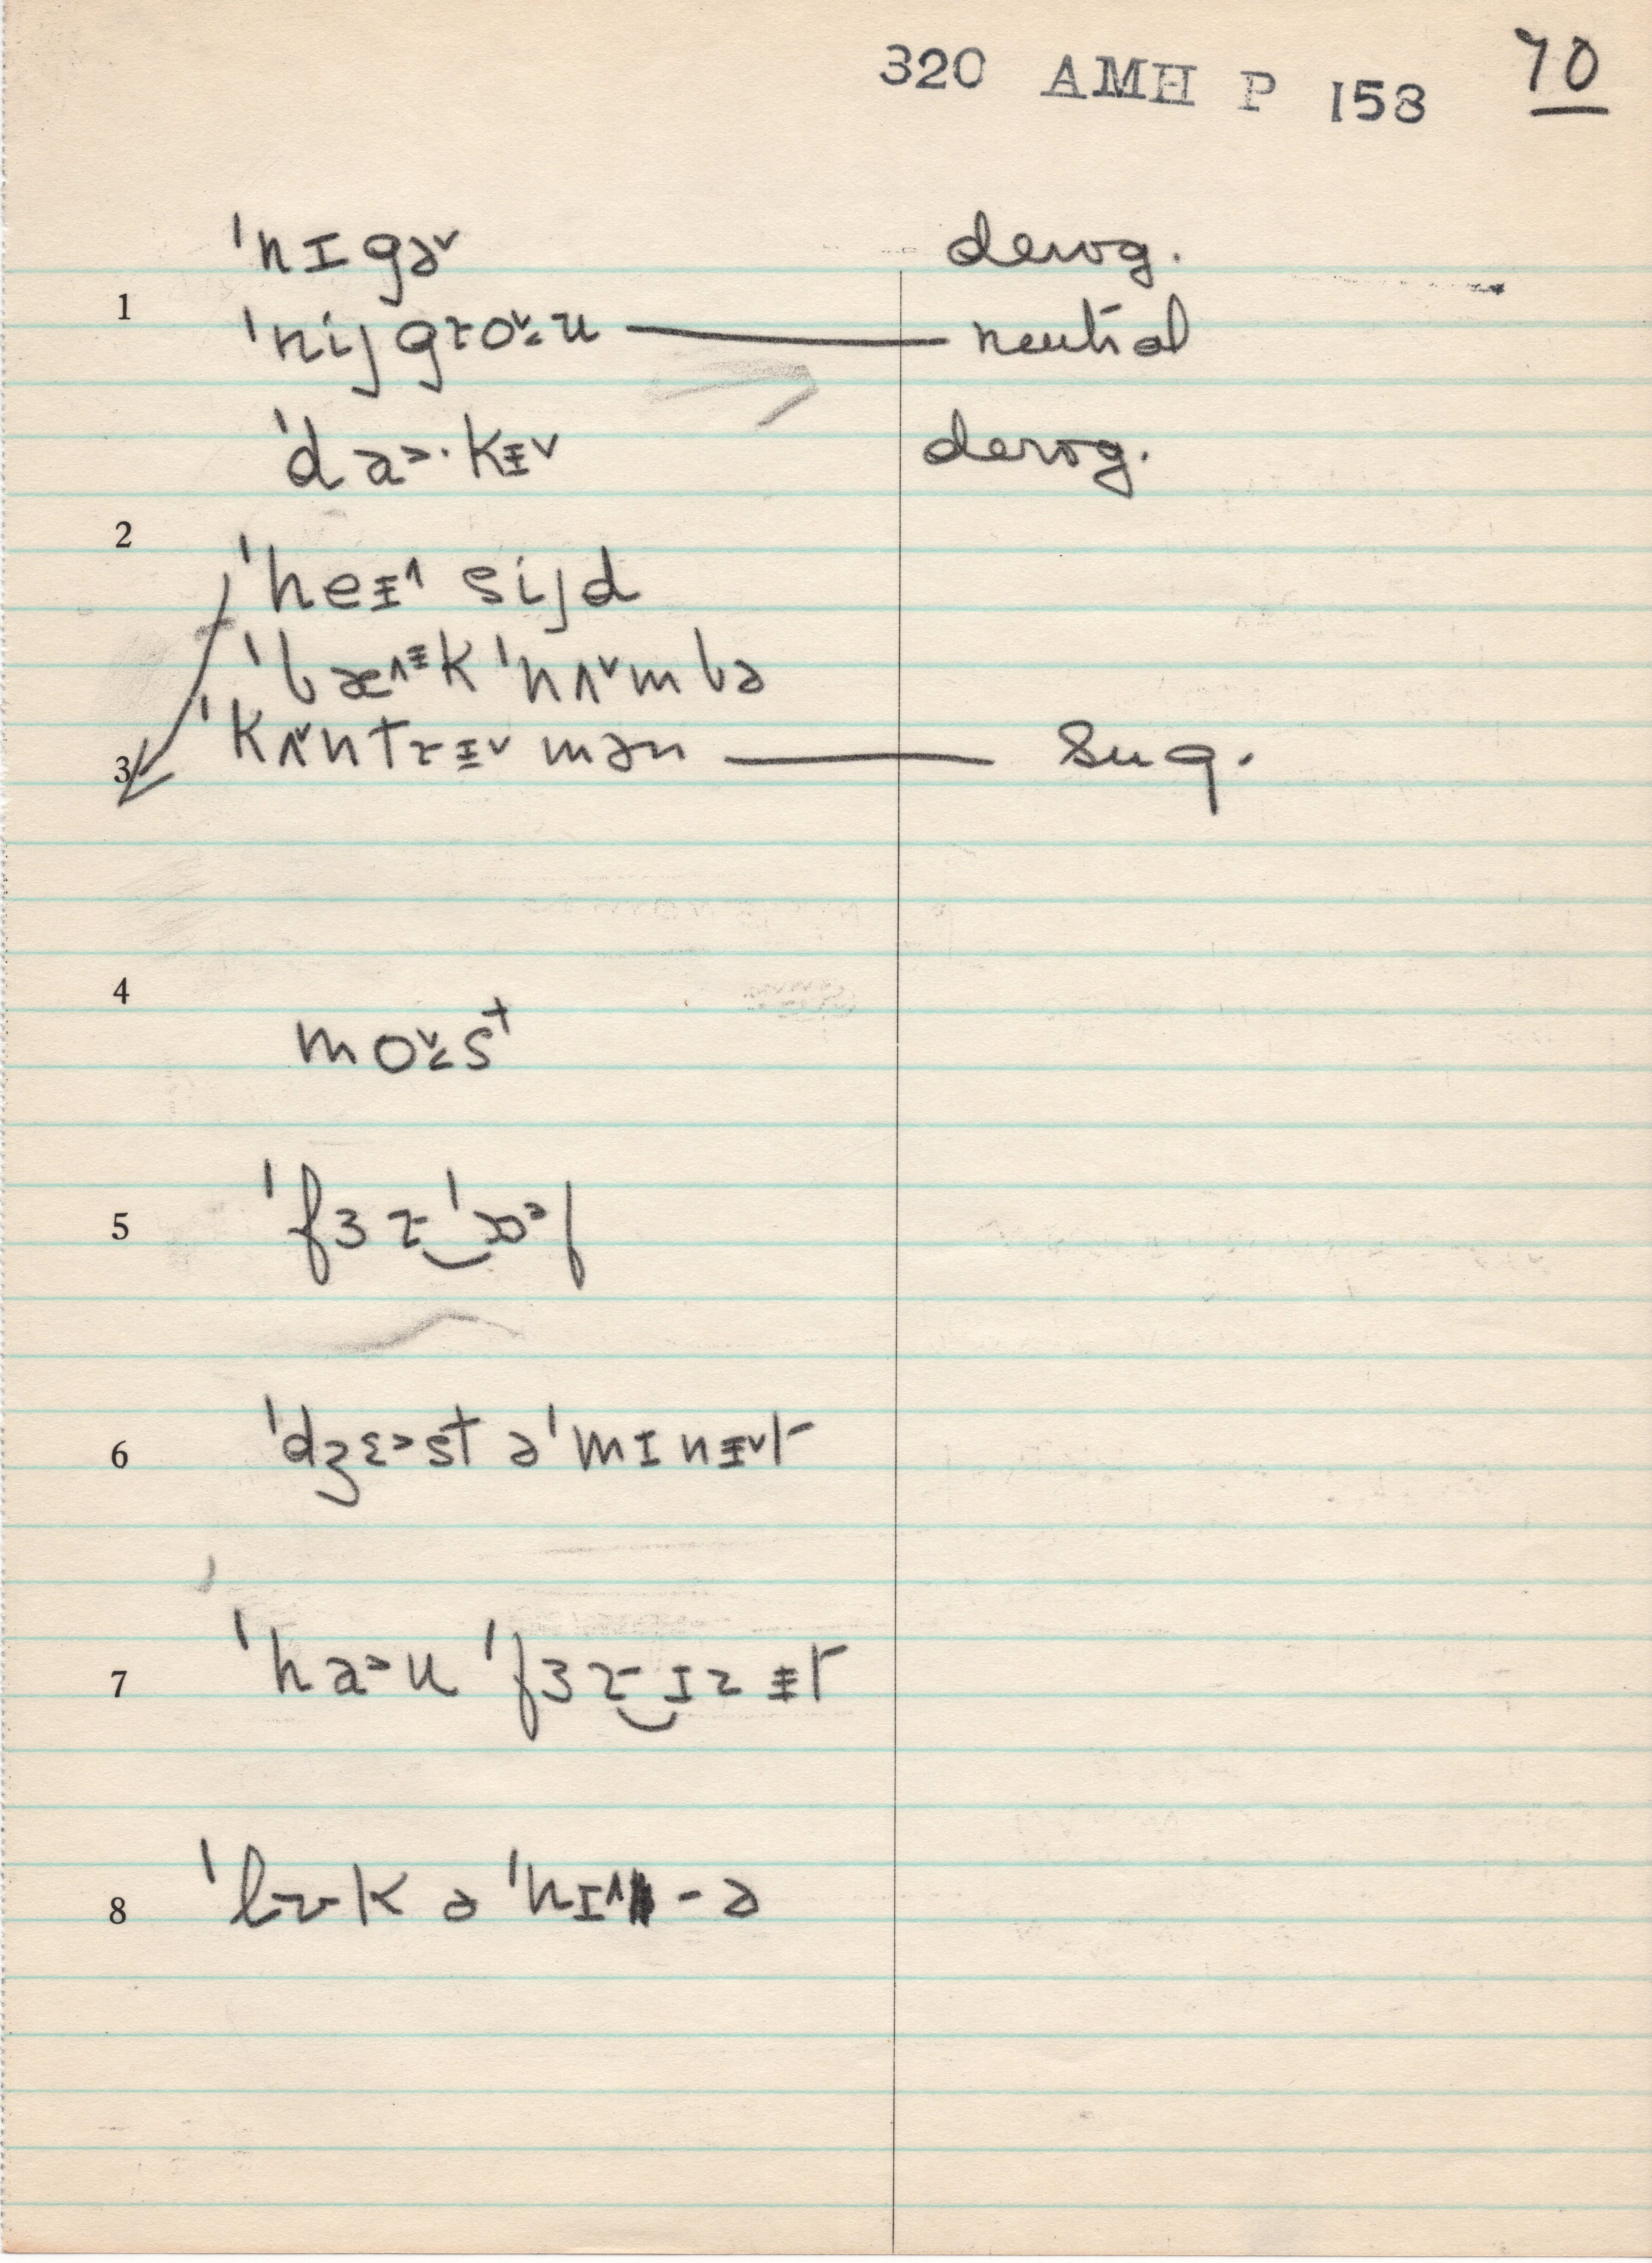 320 AMH P 158 70
ˈnɪgə˅ derog.
1
ˈnijgɹo˅u — neutral
ˈda>·kɪ˅ derog.
2
ˈheɪ˄ sijd
ˈbæ˄ᵻk ˈnʌ˅mbə
ˈkʌ˅ntɹᵻ˅mən — sug.
3
4
mo˅<st
5
ˈfɜɹ‿ˈɔᵊf
6
ˈdʒɛ>st əˈmɪnᵻ˅t
7
ˈha>u ˈfɜɹ‿ɪz ᵻt
8
ˈlʊk əˈhɪ˄-ə